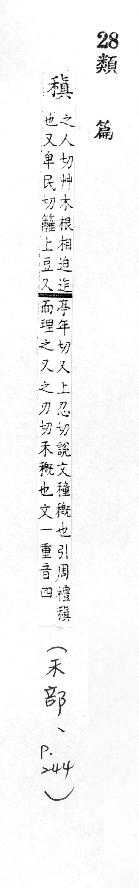 28
類
篇
稹 之人切艸木根相迫迮
也又卑民切籬上豆又
亭年切又上忍切說文穜穊也引周禮稹
而理之又之刃切禾穊也文一重音四
(禾部、P.244)